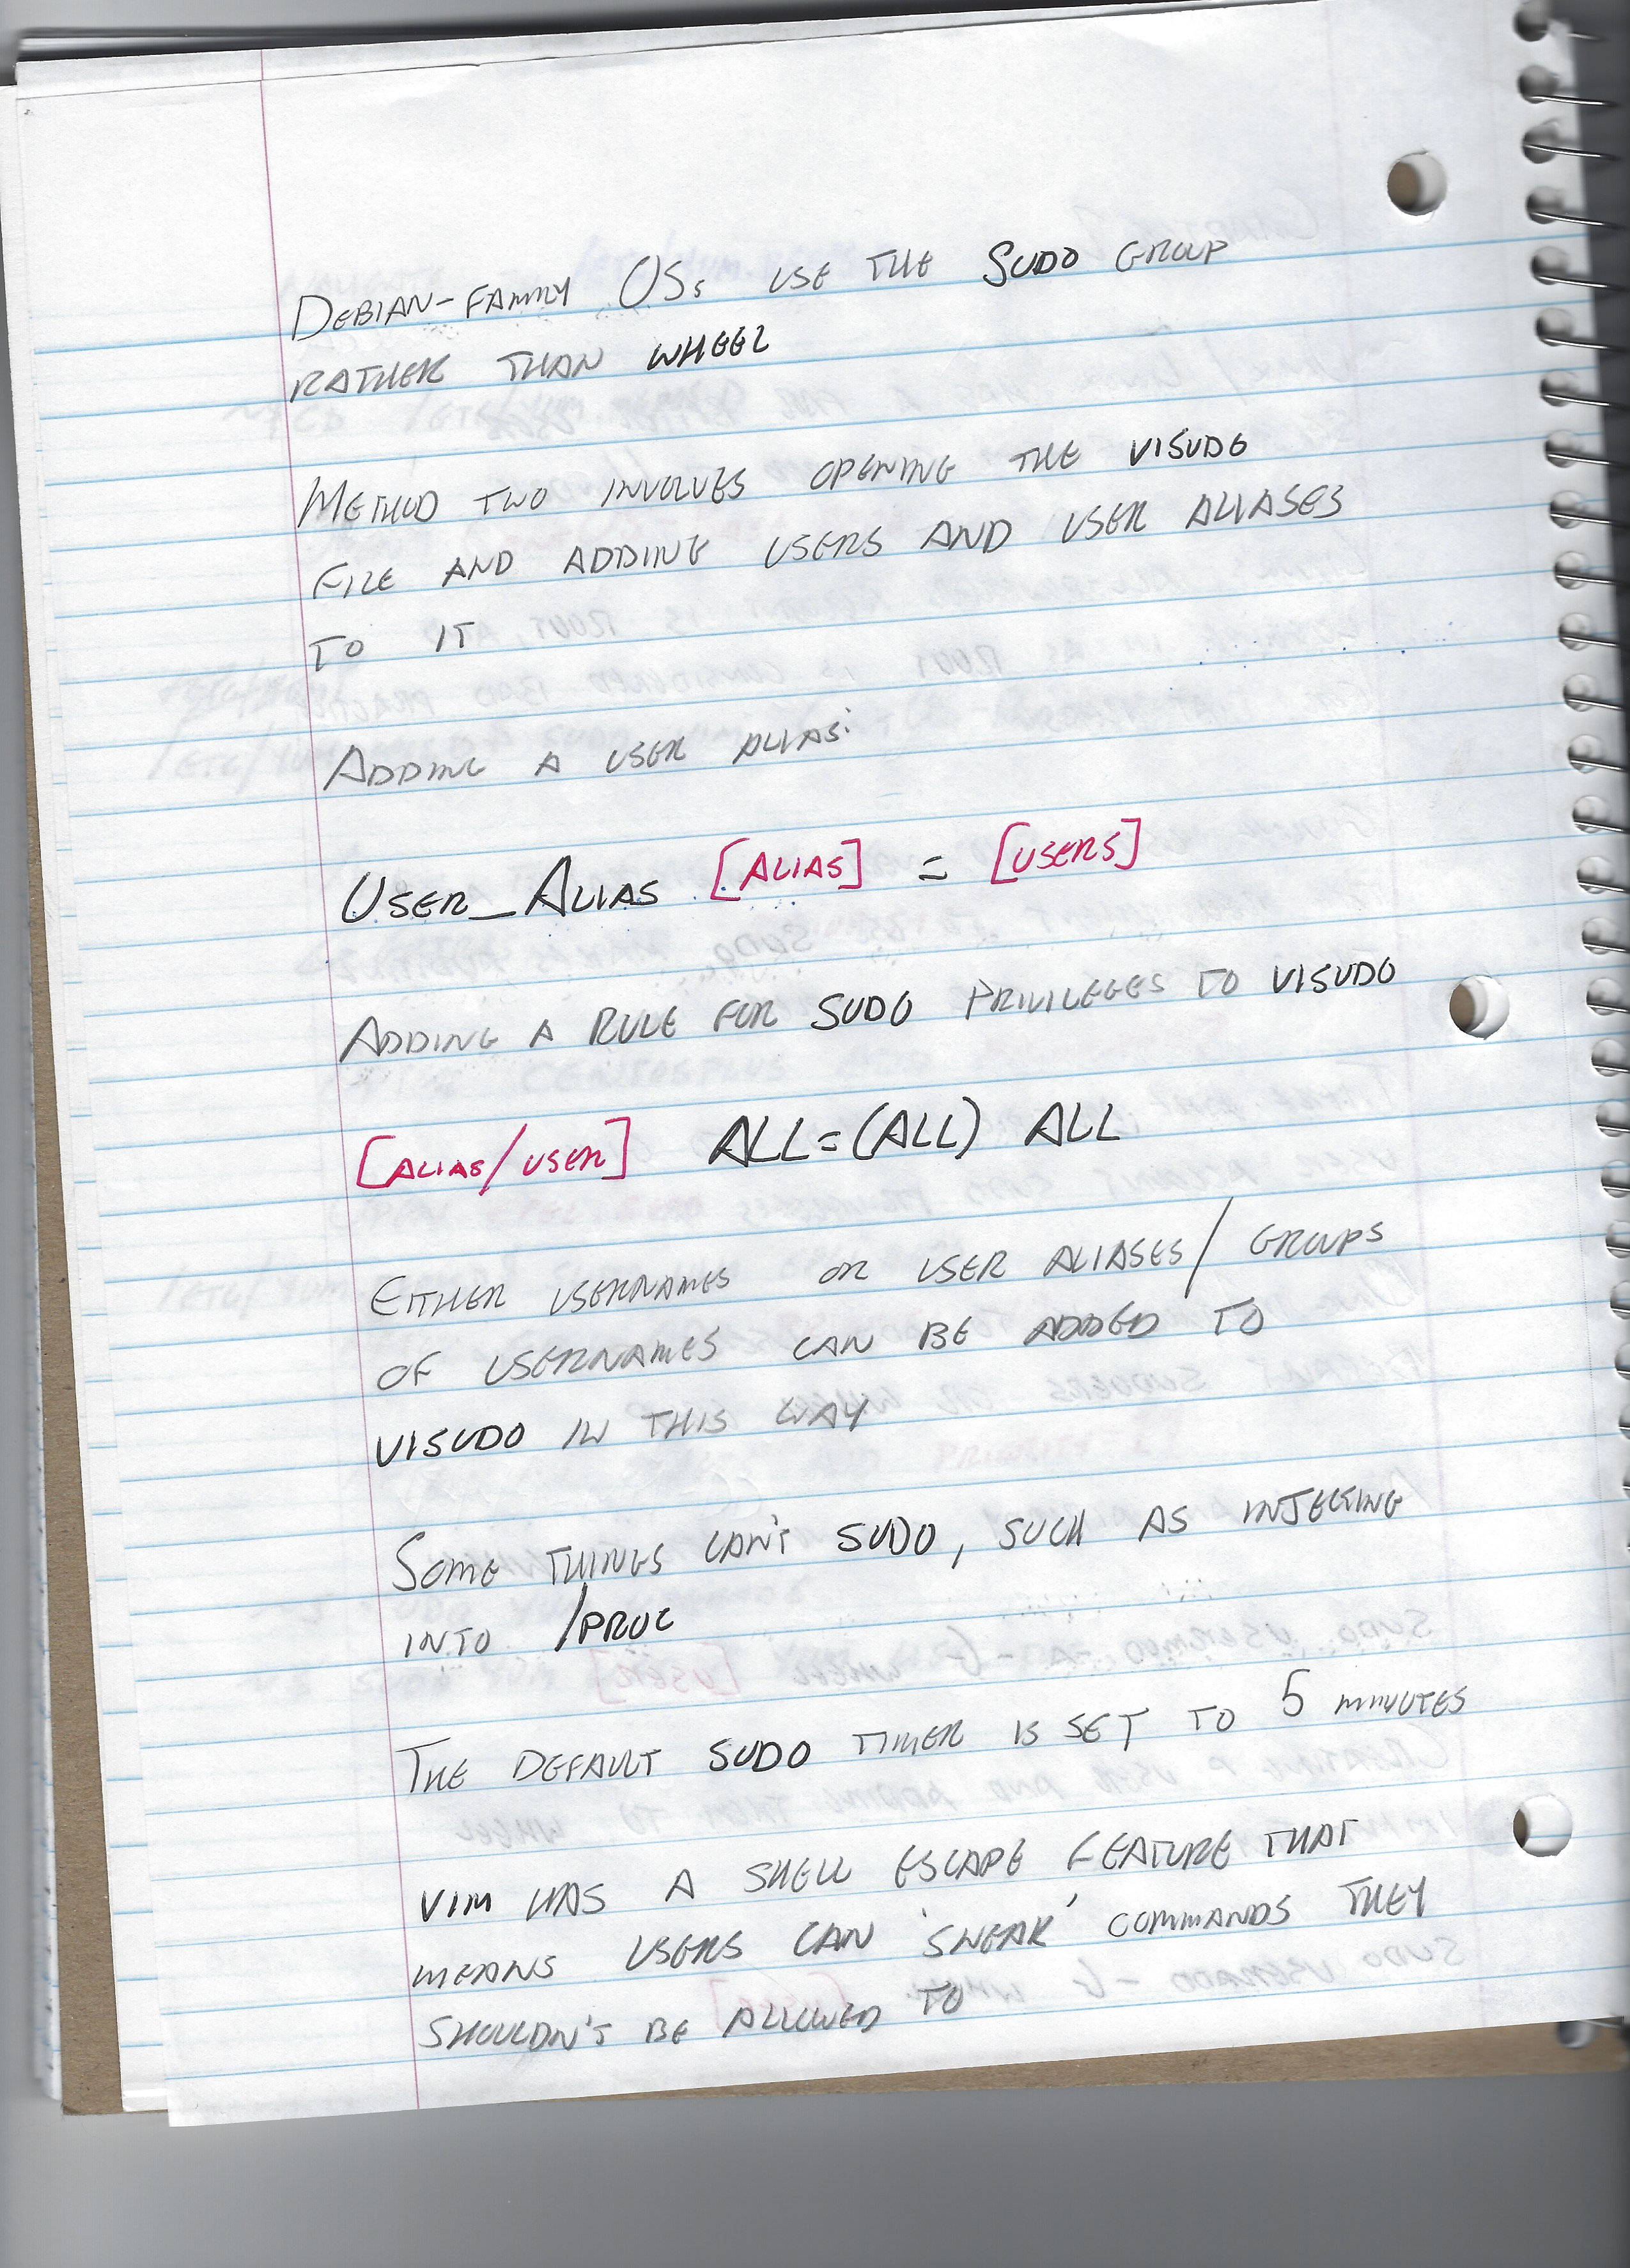 DEBIAN-FAMILY OSs USE THE SUDO GROUP
RATHER THAN WHEEL
METHOD TWO INVOLVES OPENING THE VISUDO
FILE AND ADDING USERS AND USER ALIASES
TO IT
ADDING A USER ALIAS:
USER_ALIAS [ALIAS] = [USERS]
ADDING A RULE FOR SUDO PRIVILEGES TO VISUDO
[ALIAS/USER] ALL=(ALL) ALL
EITHER USERNAMES OR USER ALIASES/GROUPS
OF USERNAMES CAN BE ADDED TO
VISUDO IN THIS WAY
SOME THINGS CAN'T SUDO, SUCH AS INJECTING
INTO /PROC
THE DEFAULT SUDO TIMER IS SET TO 5 MINUTES
VIM HAS A SHELL ESCAPE FEATURE THAT
MEANS USERS CAN 'SNEAK' COMMANDS THEY
SHOULDN'T BE ALLOWED TO